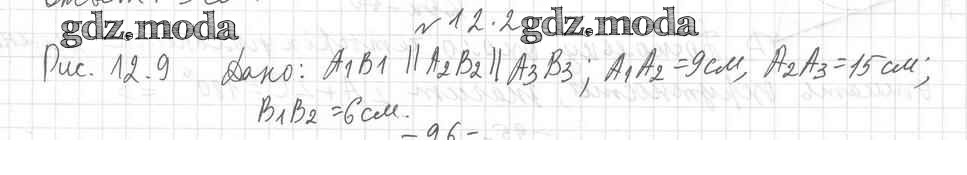 gdz.moda № 12.2 gdz.moda
Рис. 12.9 Дано: A₁B₁ || A₂B₂ || A₃B₃; A₁A₂ = 9 см, A₂A₃ = 15 см;
B₁B₂ = 6 см.
- 96 -